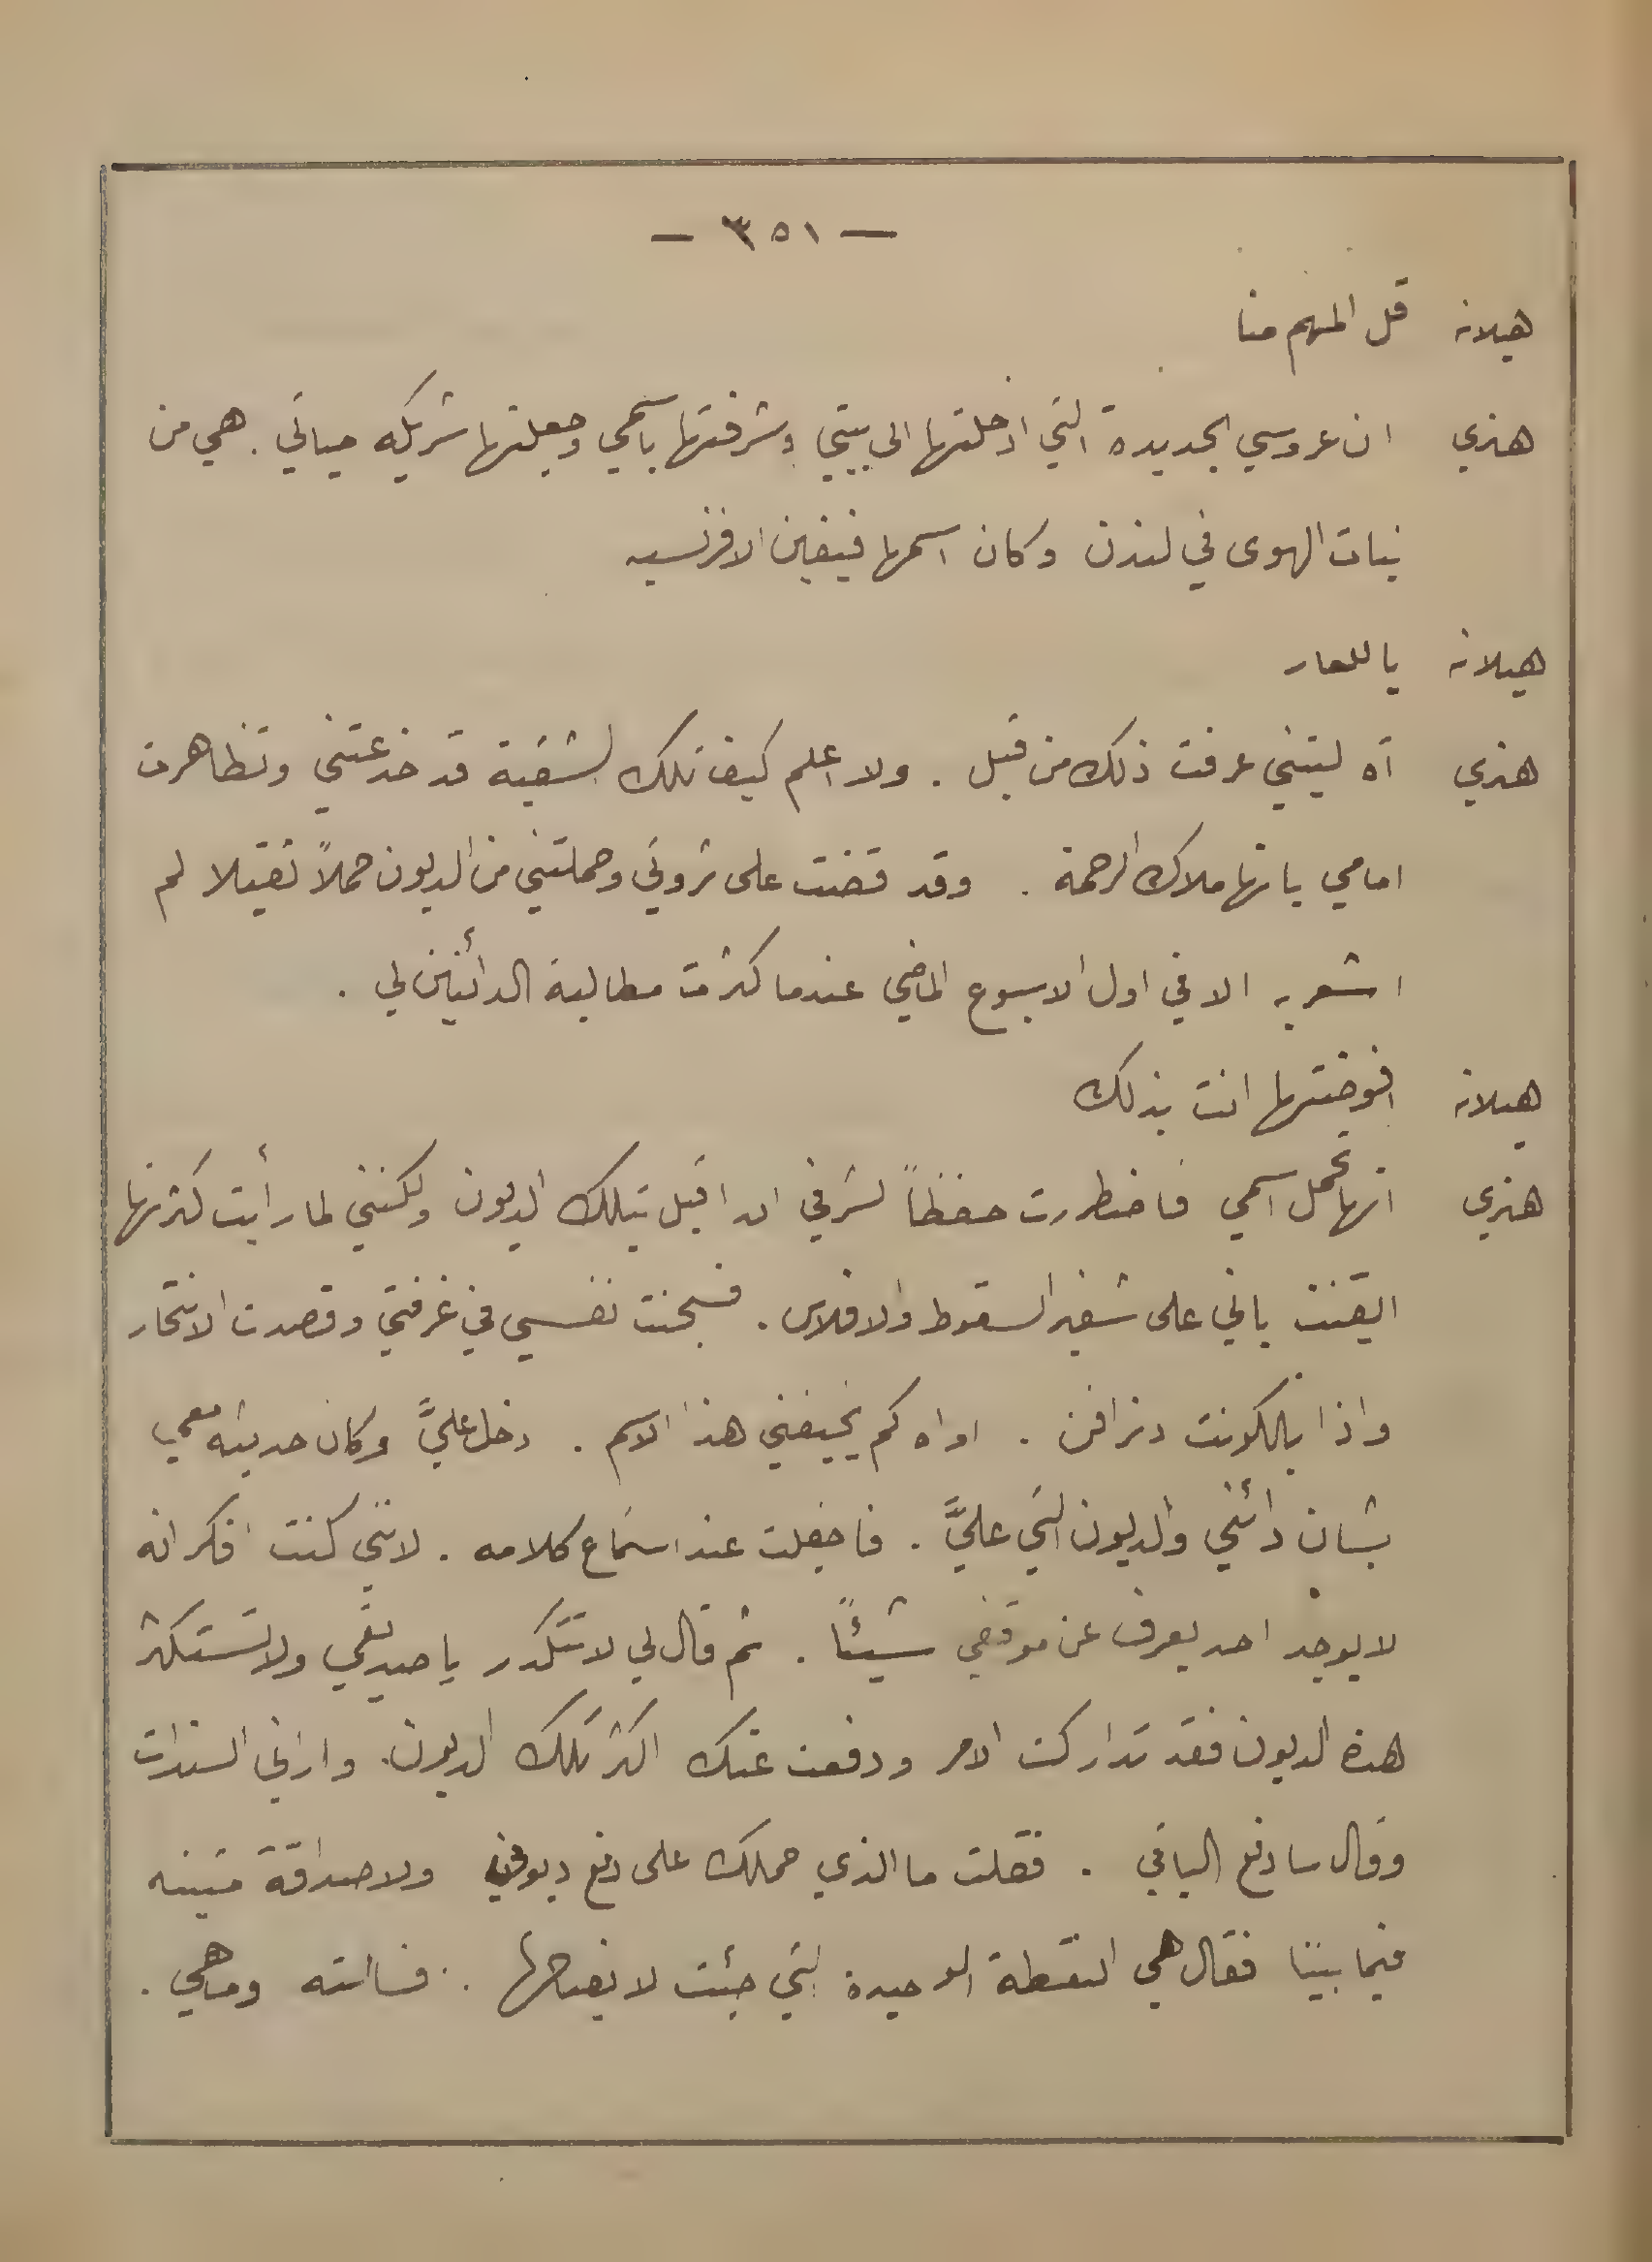 — ٣٥١ —
هيلانه قل المهم منا
هنري ان عروسي الجديدة التي ادخلتها الى بيتي وشرفتها باسمي وجعلتها شريكه حياتي . هي من
بنات الهوى في لندن وكان اسمها فيفين الافرنسيه
هيلانه يا للعار
هنري آه ليتني عرفت ذلك من قبل . ولا اعلم كيف تلك الشقية قد خدعتني وتظاهرت
امامي بانها ملاك الرحمة . وقد قضت على ثروتي وحملتني من الديون حملاً ثقيلا لم
اشعر به الا في اول الاسبوع الماضي عندما كثرت مطالبة الدائنين لي .
هيلانه افوضتها انت بذلك
هنري انها تحمل اسمي فاضطررت حفظاً لشرفي ان اقبل بتلك الديون ولكنني لما رأيت كثرتها
ايقنت باني على شفير السقوط والافلاس . فسجنت نفسي في غرفتي وقصدت الانتحار
واذا بالكونت دنرافن . اواه كم يخيفني هذا الاسم . دخل عليَّ وكان حديثه معي
بشان دائني والديون التي عليَّ . فاجفلت عند استماع كلامه . لانني كنت افكر انه
لا يوجد احد يعرف عن موقفي شيئاً . ثم قال لي لا تتكدر يا صديقي ولا تستكثر
هذه الديون فقد تداركت الامر ودفعت عنك اكثر تلك الديون . واراني السندات
وقال سادفع الباقي . فقلت ما الذي حملك على دفع ديوني ولا صداقة متينه
فيما بيننا فقال هي النقطة الوحيدة التي جئت لايضاحها . فسالته وما هي .